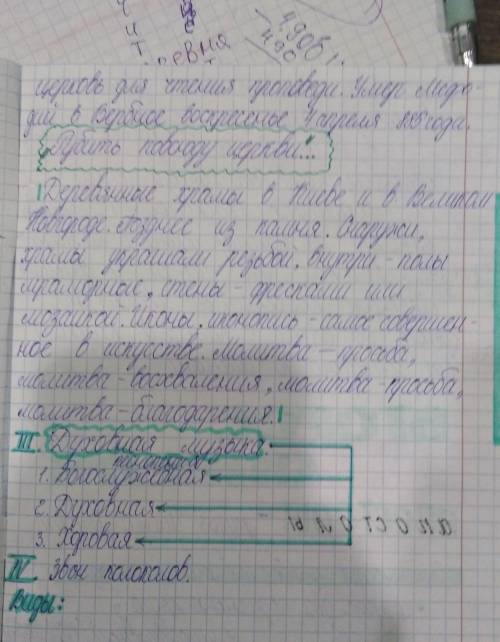 4906
490
ревня
церковь для чтения проповеди. Умер Мефо-
дий в Вербное воскресенье 4 апреля 885 года.
"Рубить повсюду церкви..."
Деревянные храмы в Киеве и в Великом
Новгороде. Позднее из камня. Снаружи,
храмы украшали резьбой, внутри - полы
мраморные, стены - фресками или
мозаикой. Иконы, иконопись - самое совершен-
ное в искусстве. Молитва - просьба,
молитва - восхваления, молитва - просьба,
молитва - благодарения.
III. Духовная музыка.
1. Богослужебная
2. Духовная
3. Хоровая
IV Звон колоколов.
Виды: